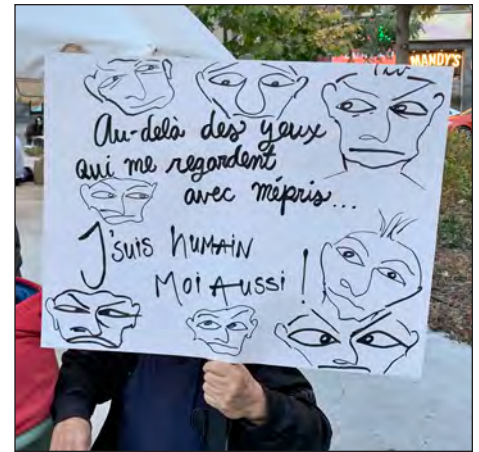 MANDY'S
Au-delà des yeux
qui me regardent
avec mépris...
J'suis HUMAIN
Moi Aussi !